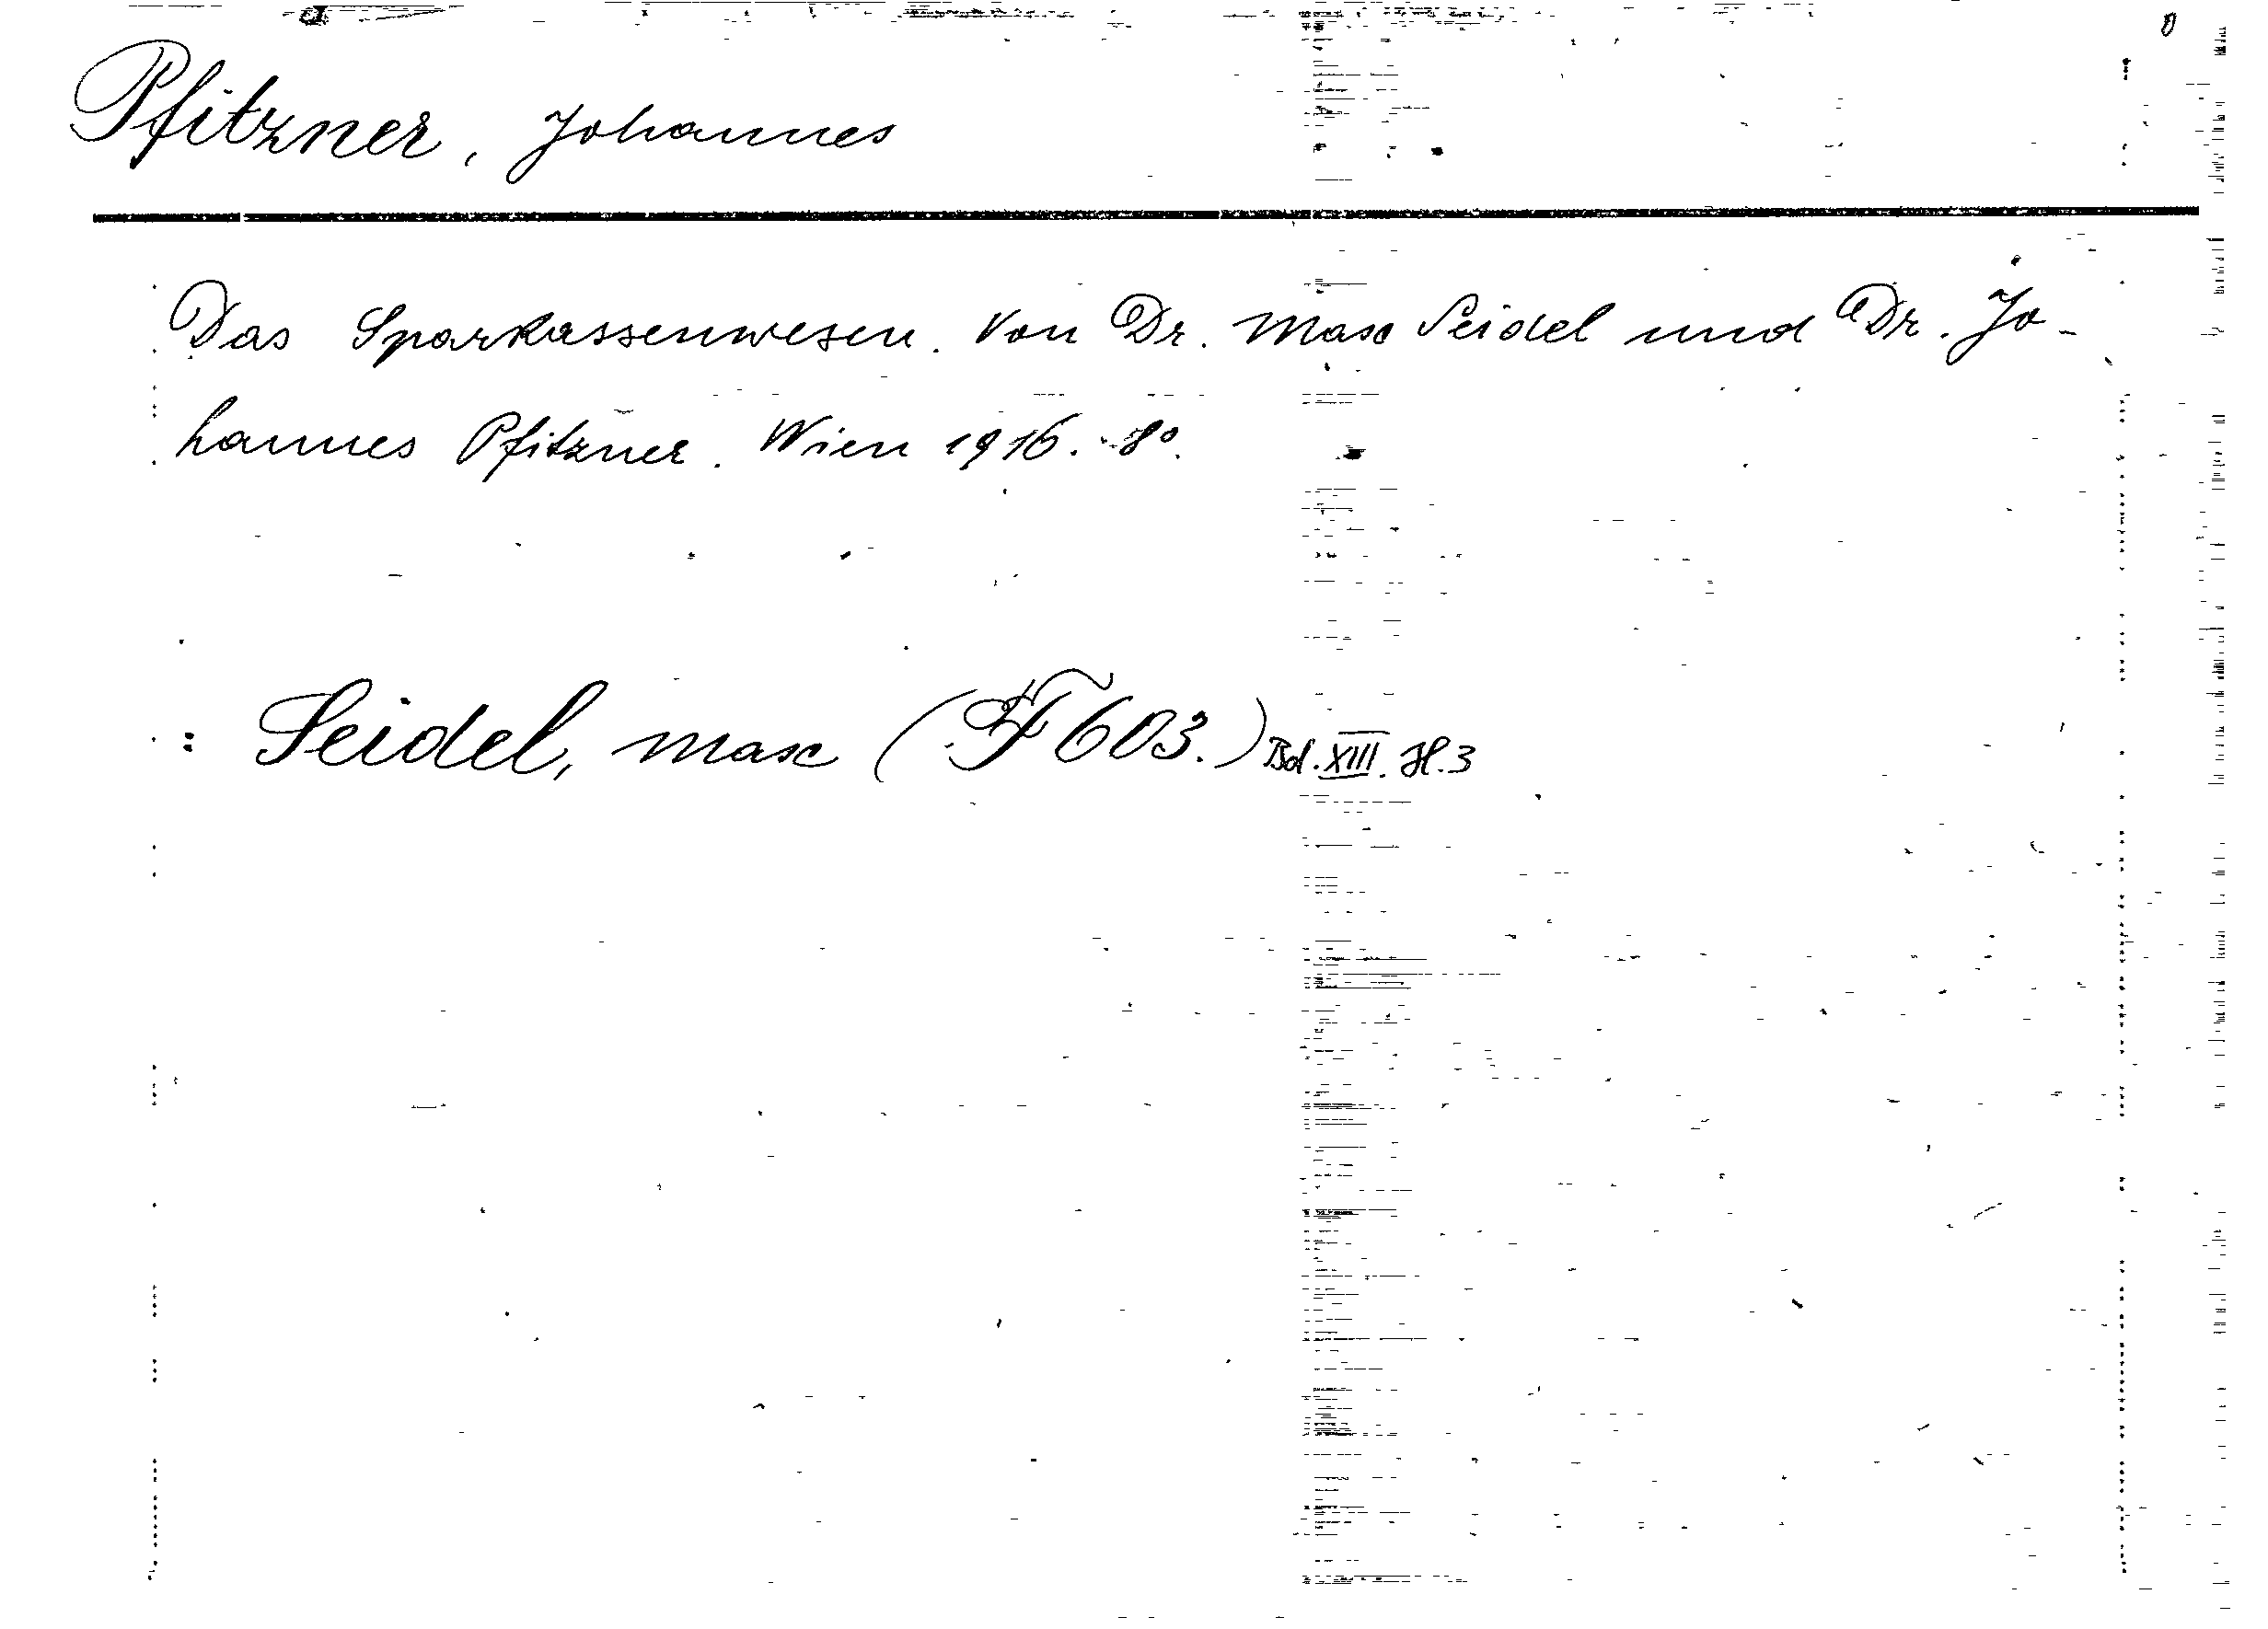 Pfitzner, Johannes
Das Sparkassenwesen. Von Dr. Max Seidel und Dr. Jo-
hannes Pfitzner. Wien 1916. 8°.
: Seidel, Max (F 603.) Bd. XIII. H. 3